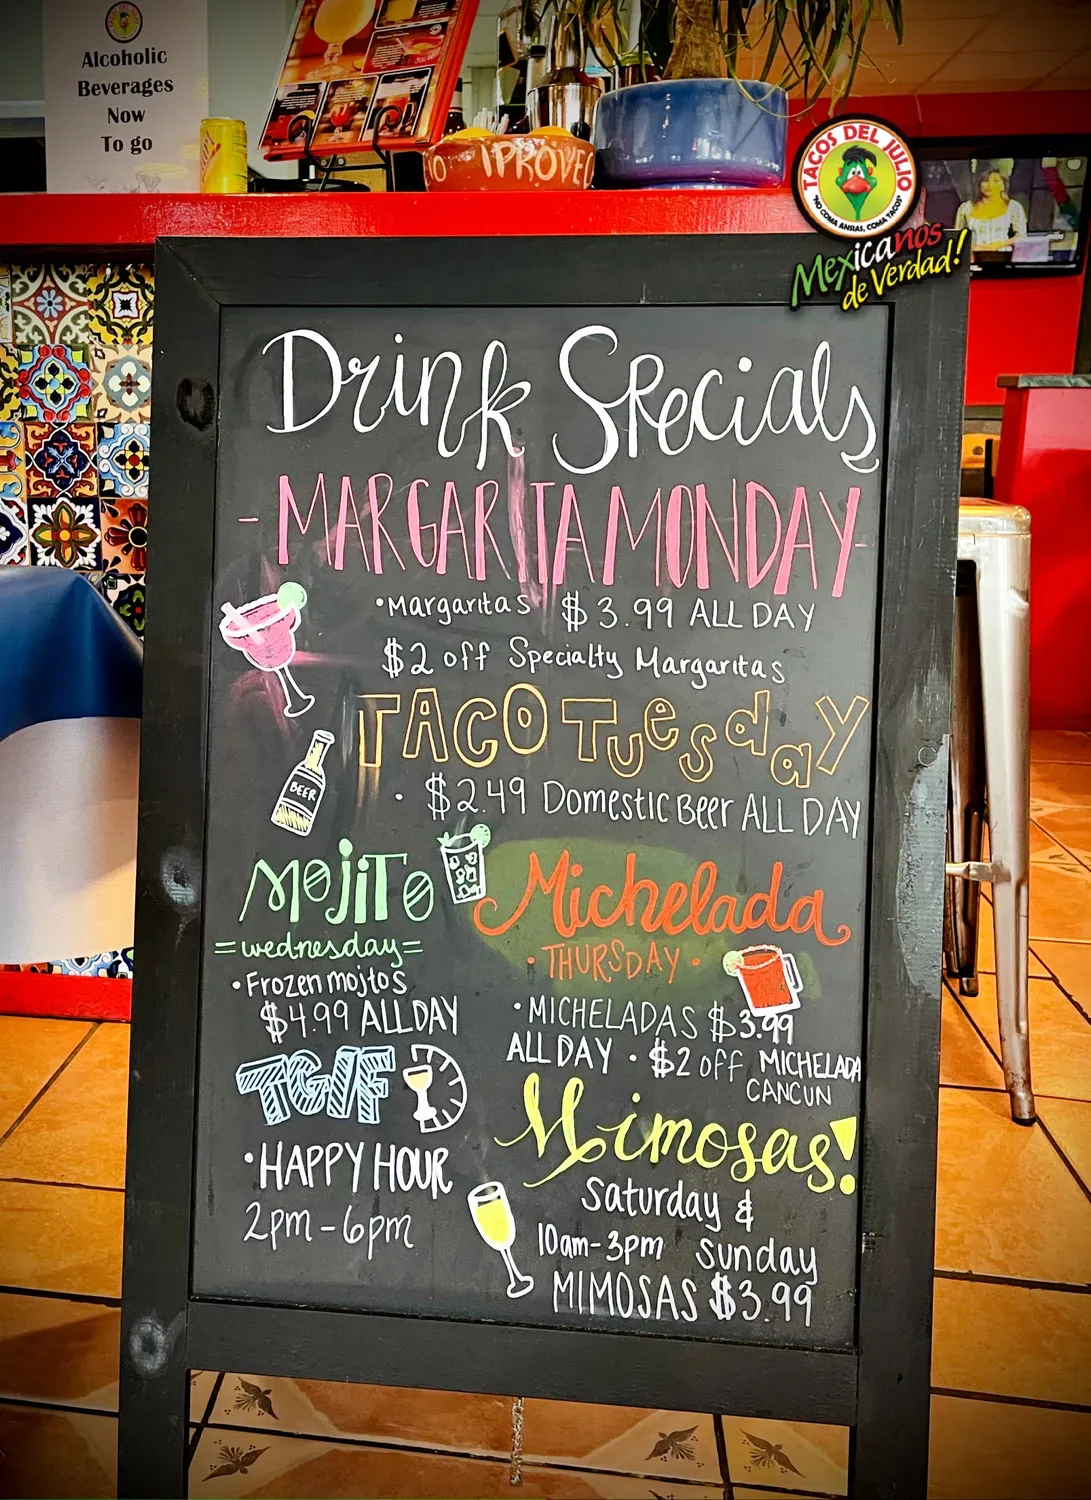 Alcoholic
Beverages
Now
To go
¡PROVE
TACOS DEL JULIO
"NO COMA ANSIAS, COMA TACOS"
Mexicanos
de Verdad!
Drink Specials
-MARGARITA MONDAY-
•Margaritas $3.99 ALL DAY
$2 off Specialty Margaritas
TACO TUesday
• $2.49 Domestic Beer ALL DAY
BEER
MOJITO
=wednesday=
•Frozen mojtos
$4.99 ALL DAY
Michelada
•THURSDAY•
•MICHELADAS $3.99
ALL DAY • $2 off MICHELADA
CANCUN
TGIF
•HAPPY HOUR
2pm-6pm
Mimosas!
Saturday &
10am-3pm Sunday
MIMOSAS $3.99